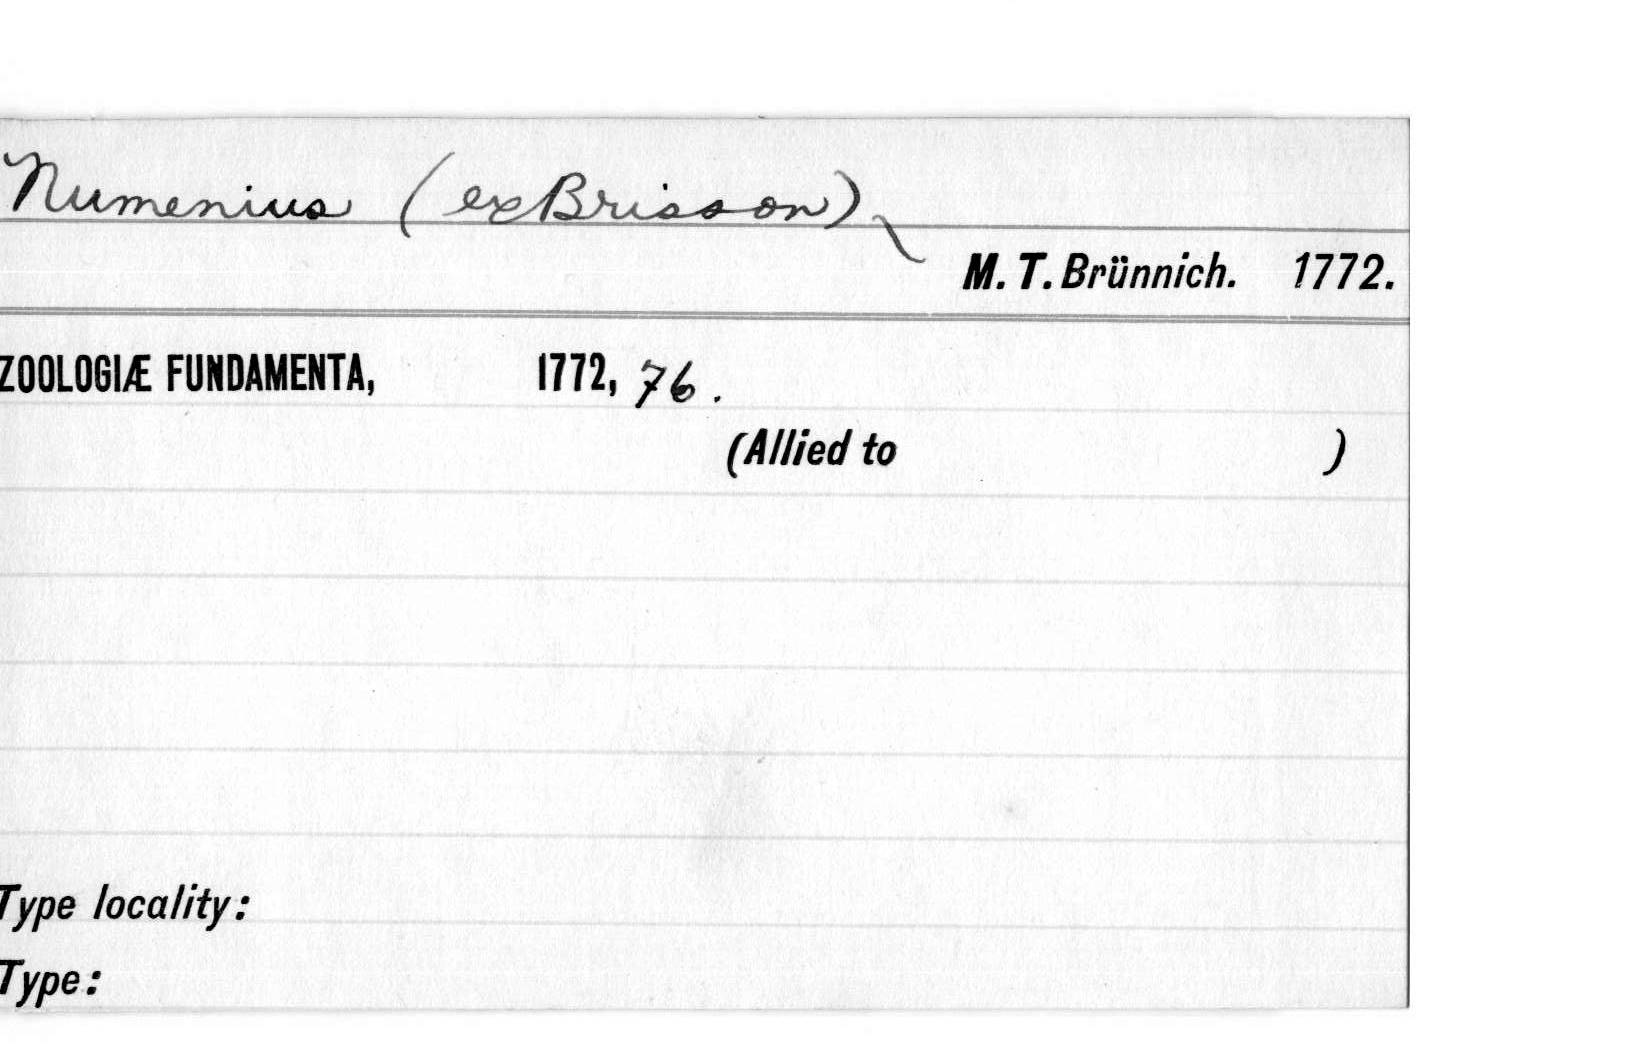 Numenius (ex Brisson)
M. T. Brünnich. 1772.
ZOOLOGIÆ FUNDAMENTA, 1772, 76.
(Allied to )
Type locality:
Type: